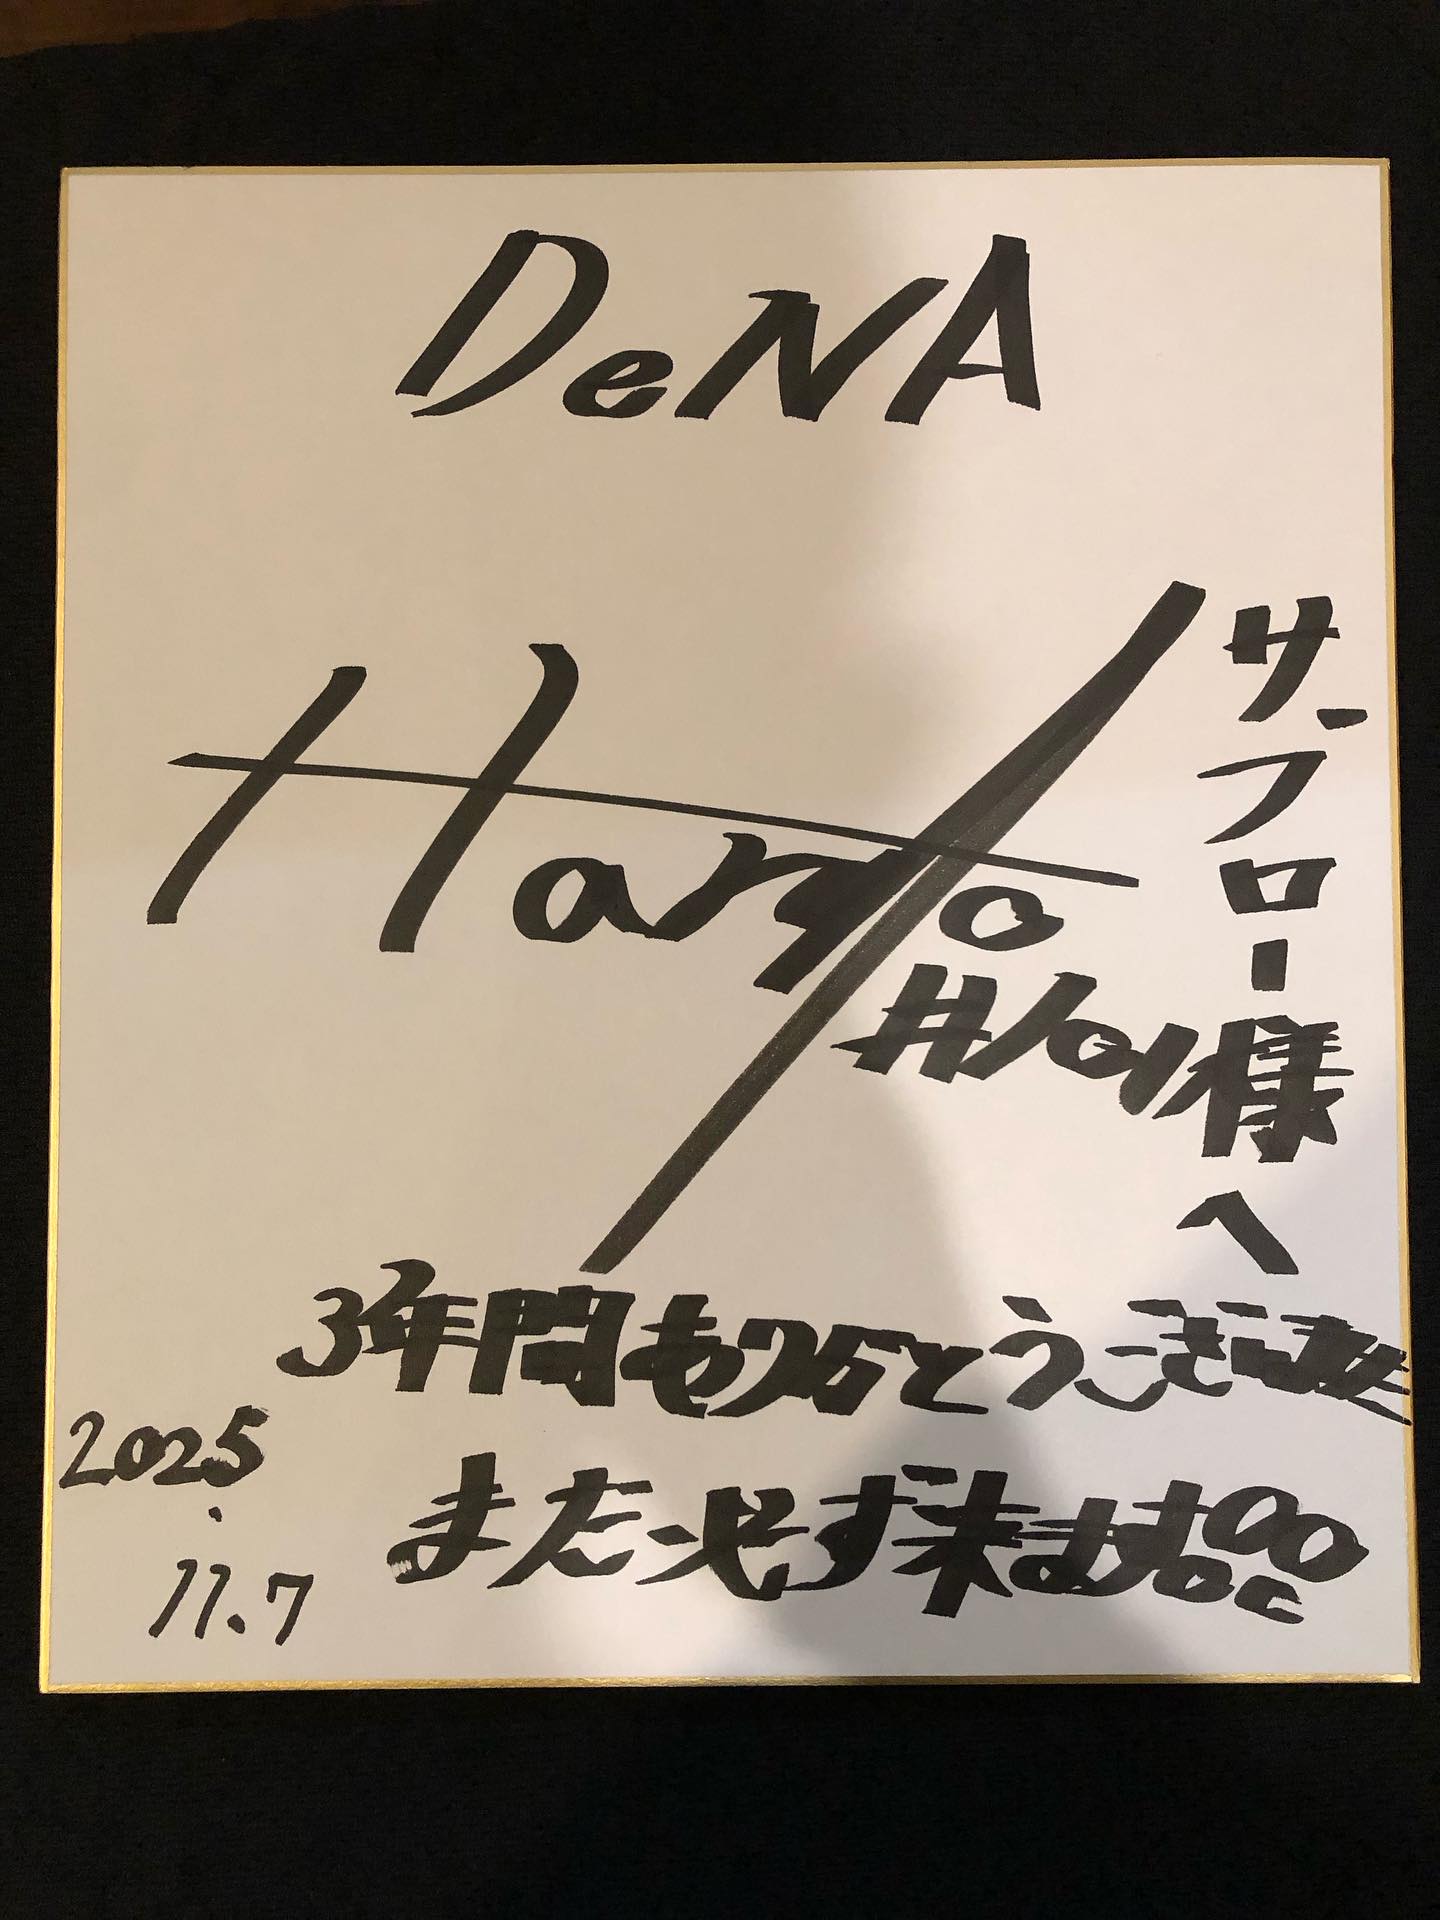 DeNA
Haruto
#101
サ、フロー様へ
3年間ありがとうございました
また必ず来ます!!
2025.11.7